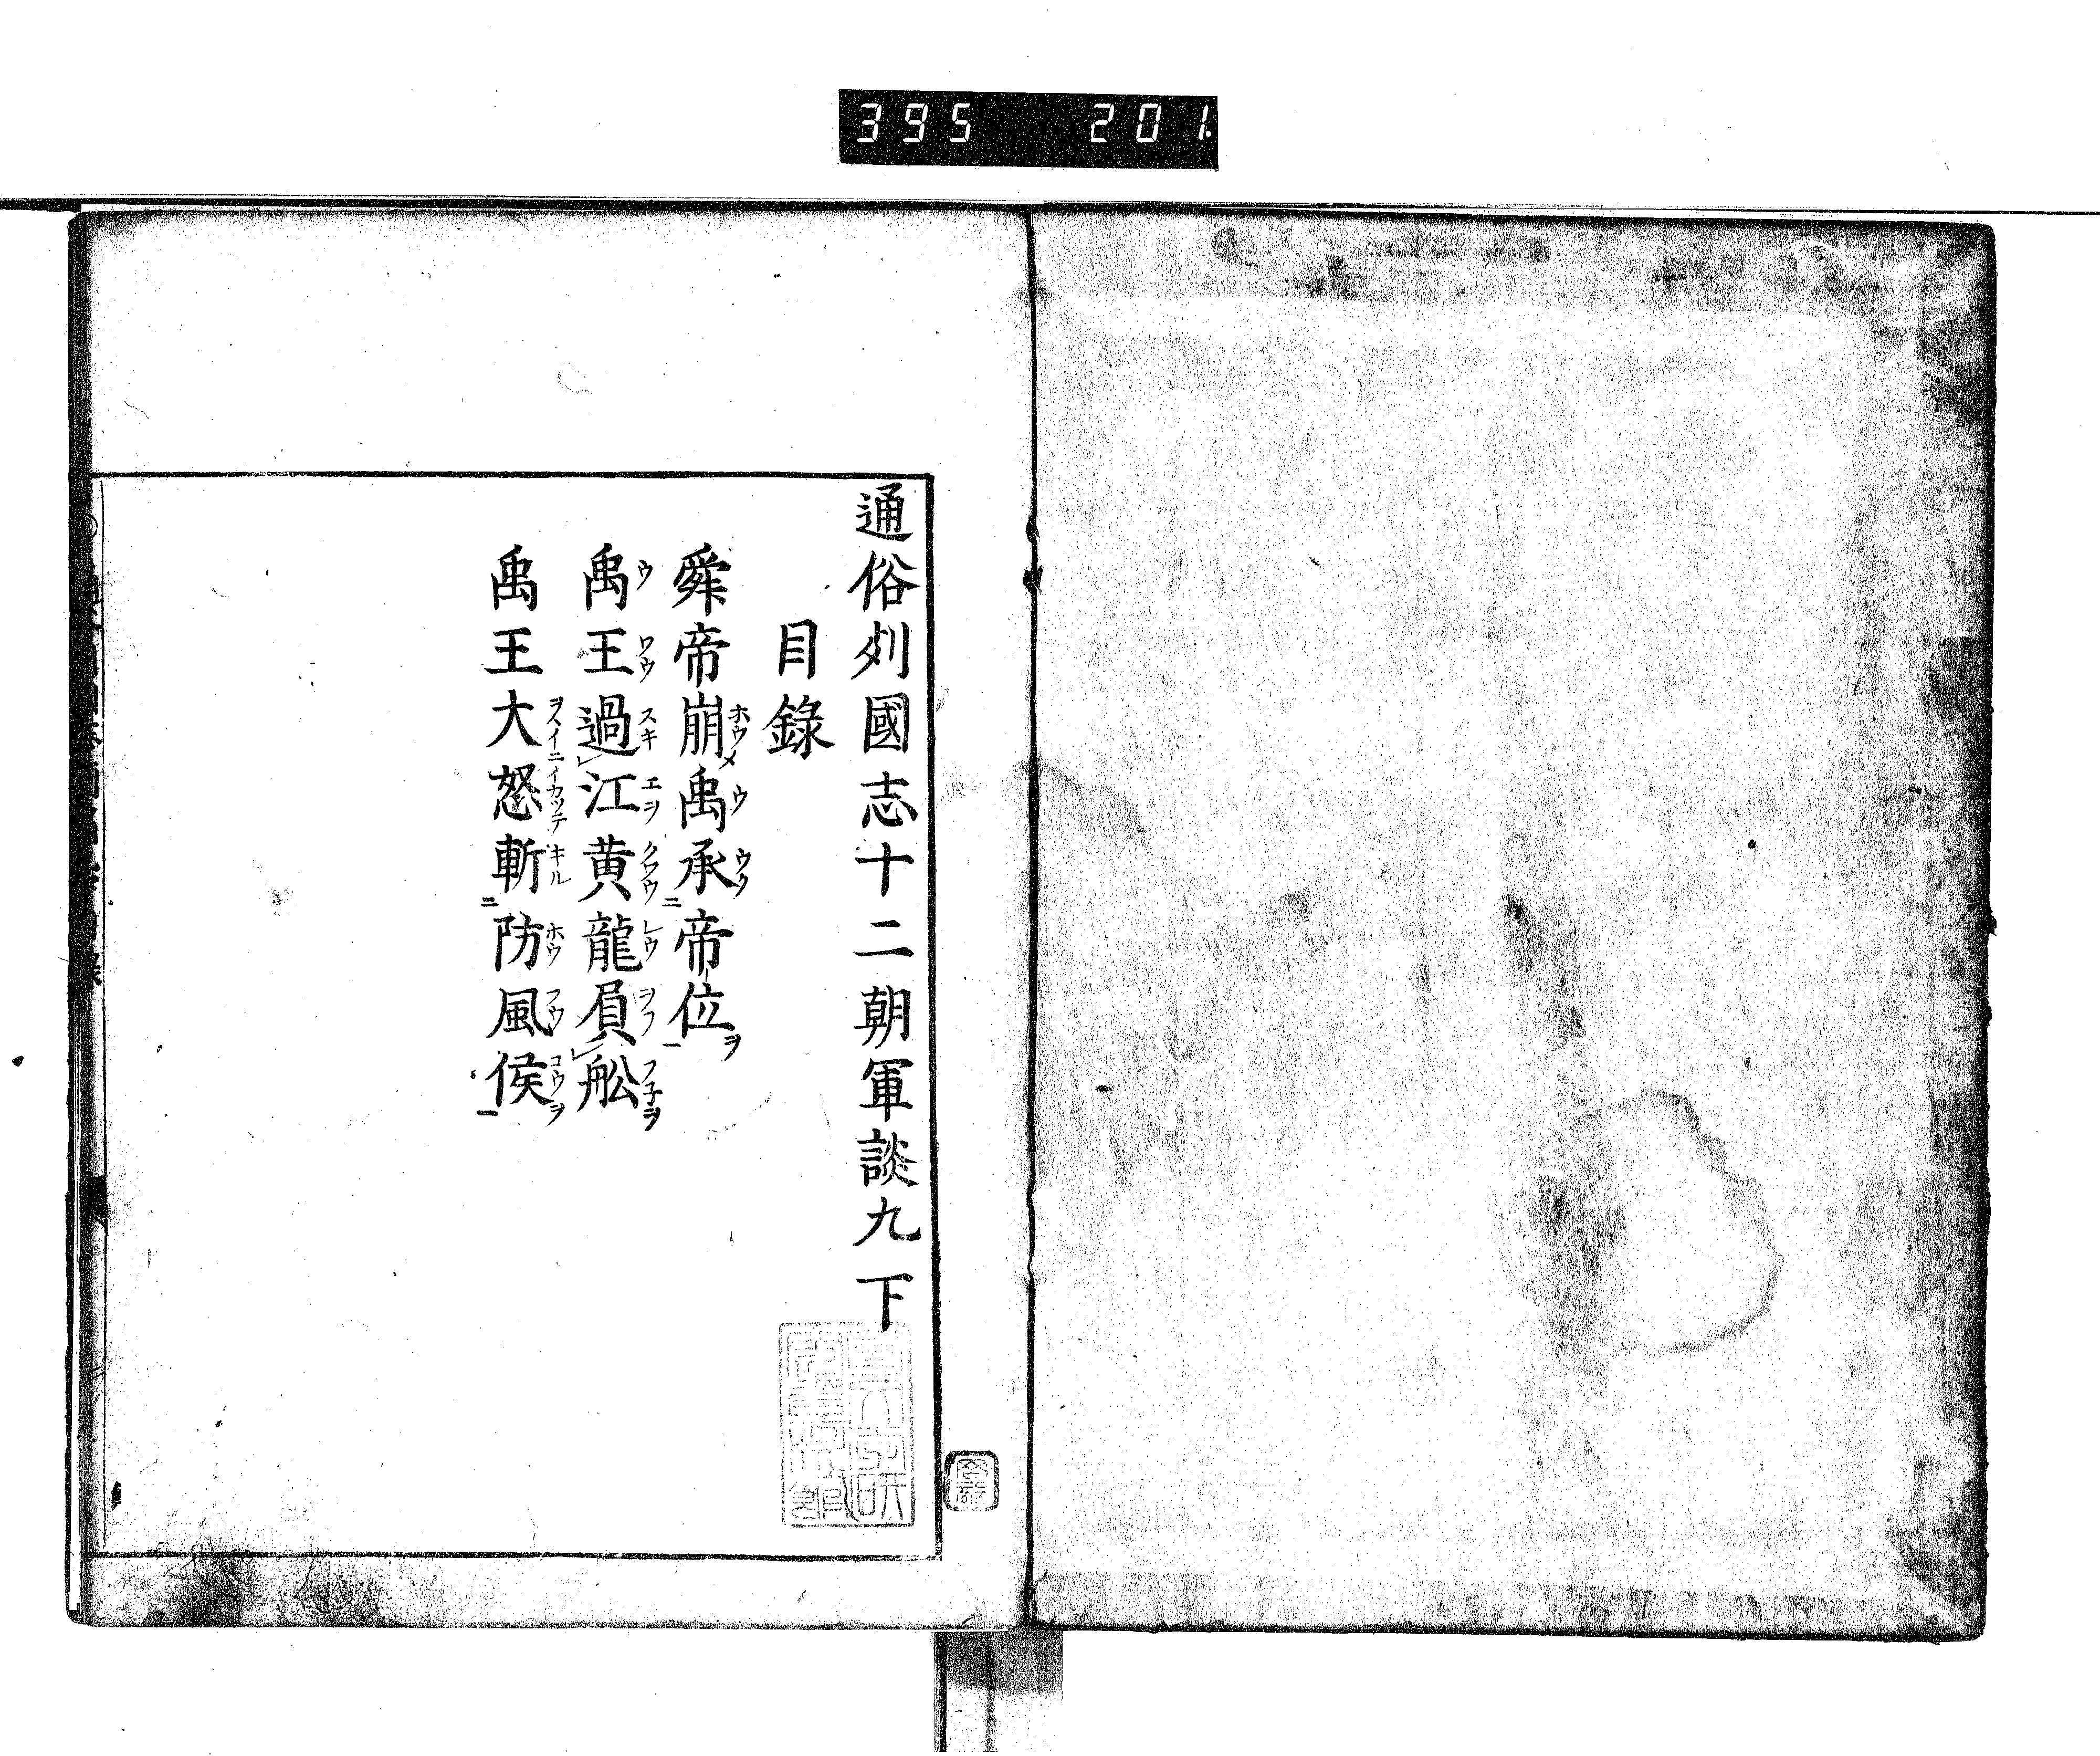 395 201
通俗列國志十二朝軍談九下
目錄
舜帝崩禹承帝位
禹王過江黄龍負舩
禹王大怒斬防風侯